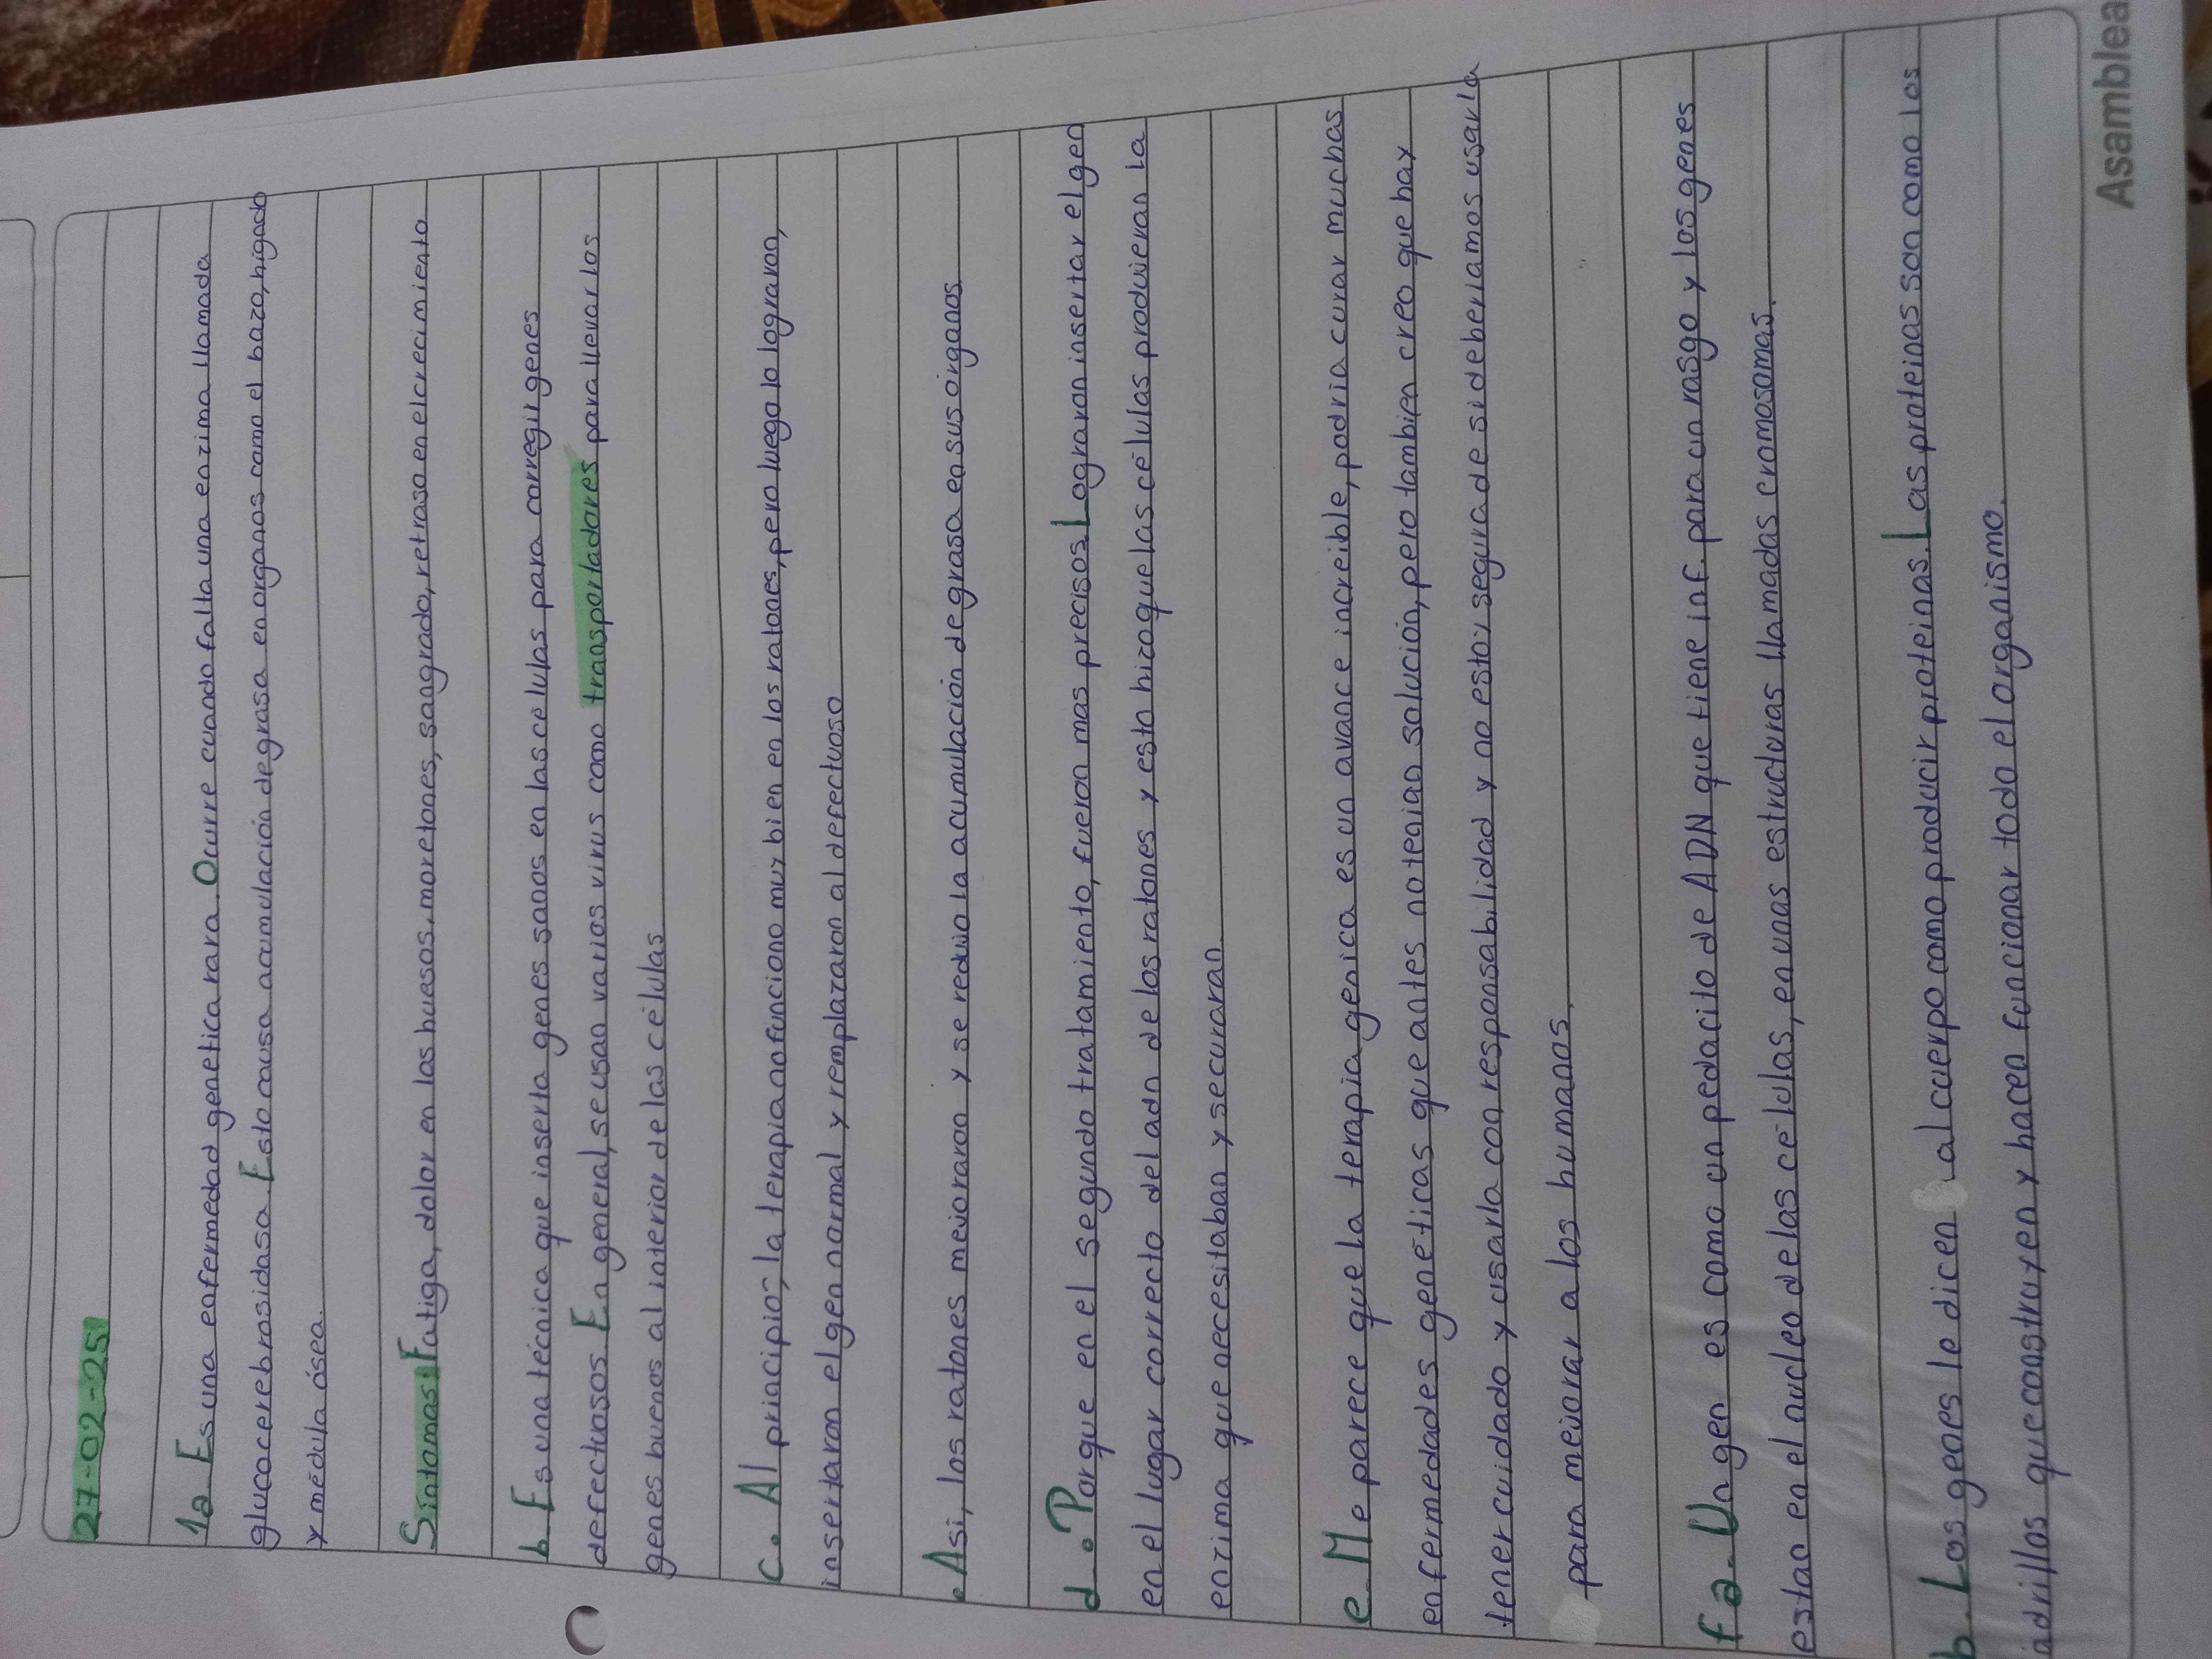 27-02-25
1a. Es una enfermedad genetica rara. Ocurre cuando falta una enzima llamada
glucocerebrosidasa. Esto causa acumulación de grasa en organos como el bazo, higado
y médula ósea.
Síntomas: Fatiga, dolor en los huesos, moretones, sangrado, retraso en el crecimiento
b. Es una técnica que inserta genes sanos en las células para corregir genes
defectuosos. En general, se usan varios virus como transportadores para llevar los
genes buenos al interior de las células
c. Al principio, la terapia no funciono muy bien en los ratones, pero luego lo lograron,
insertaron el gen normal y remplazaron al defectuoso
.Asi, los ratones mejoraron y se redujo la acumulación de grasa en sus órganos
d. Porque en el segundo tratamiento, fueron mas precisos. Lograron insertar el gen
en el lugar correcto del adn de los ratones y esto hizo que las células produjeran la
enzima que necesitaban y se curaran.
e. Me parece que la terapia genica es un avance increible, podria curar muchas
enfermedades genéticas que antes no tenian solución, pero tambien creo que hay
tener cuidado y usarla con responsabilidad y no estoy segura de si deberiamos usarla
para mejorar a los humanos.
f a. Un gen es como un pedacito de ADN que tiene inf. para un rasgo y los genes
estan en el nucleo de las células, en unas estructuras llamadas cromosomas.
b. Los genes le dicen al cuerpo como producir proteinas. Las proteinas son como los
ladrillos que construyen y hacen funcionar todo el organismo.
Asamblea